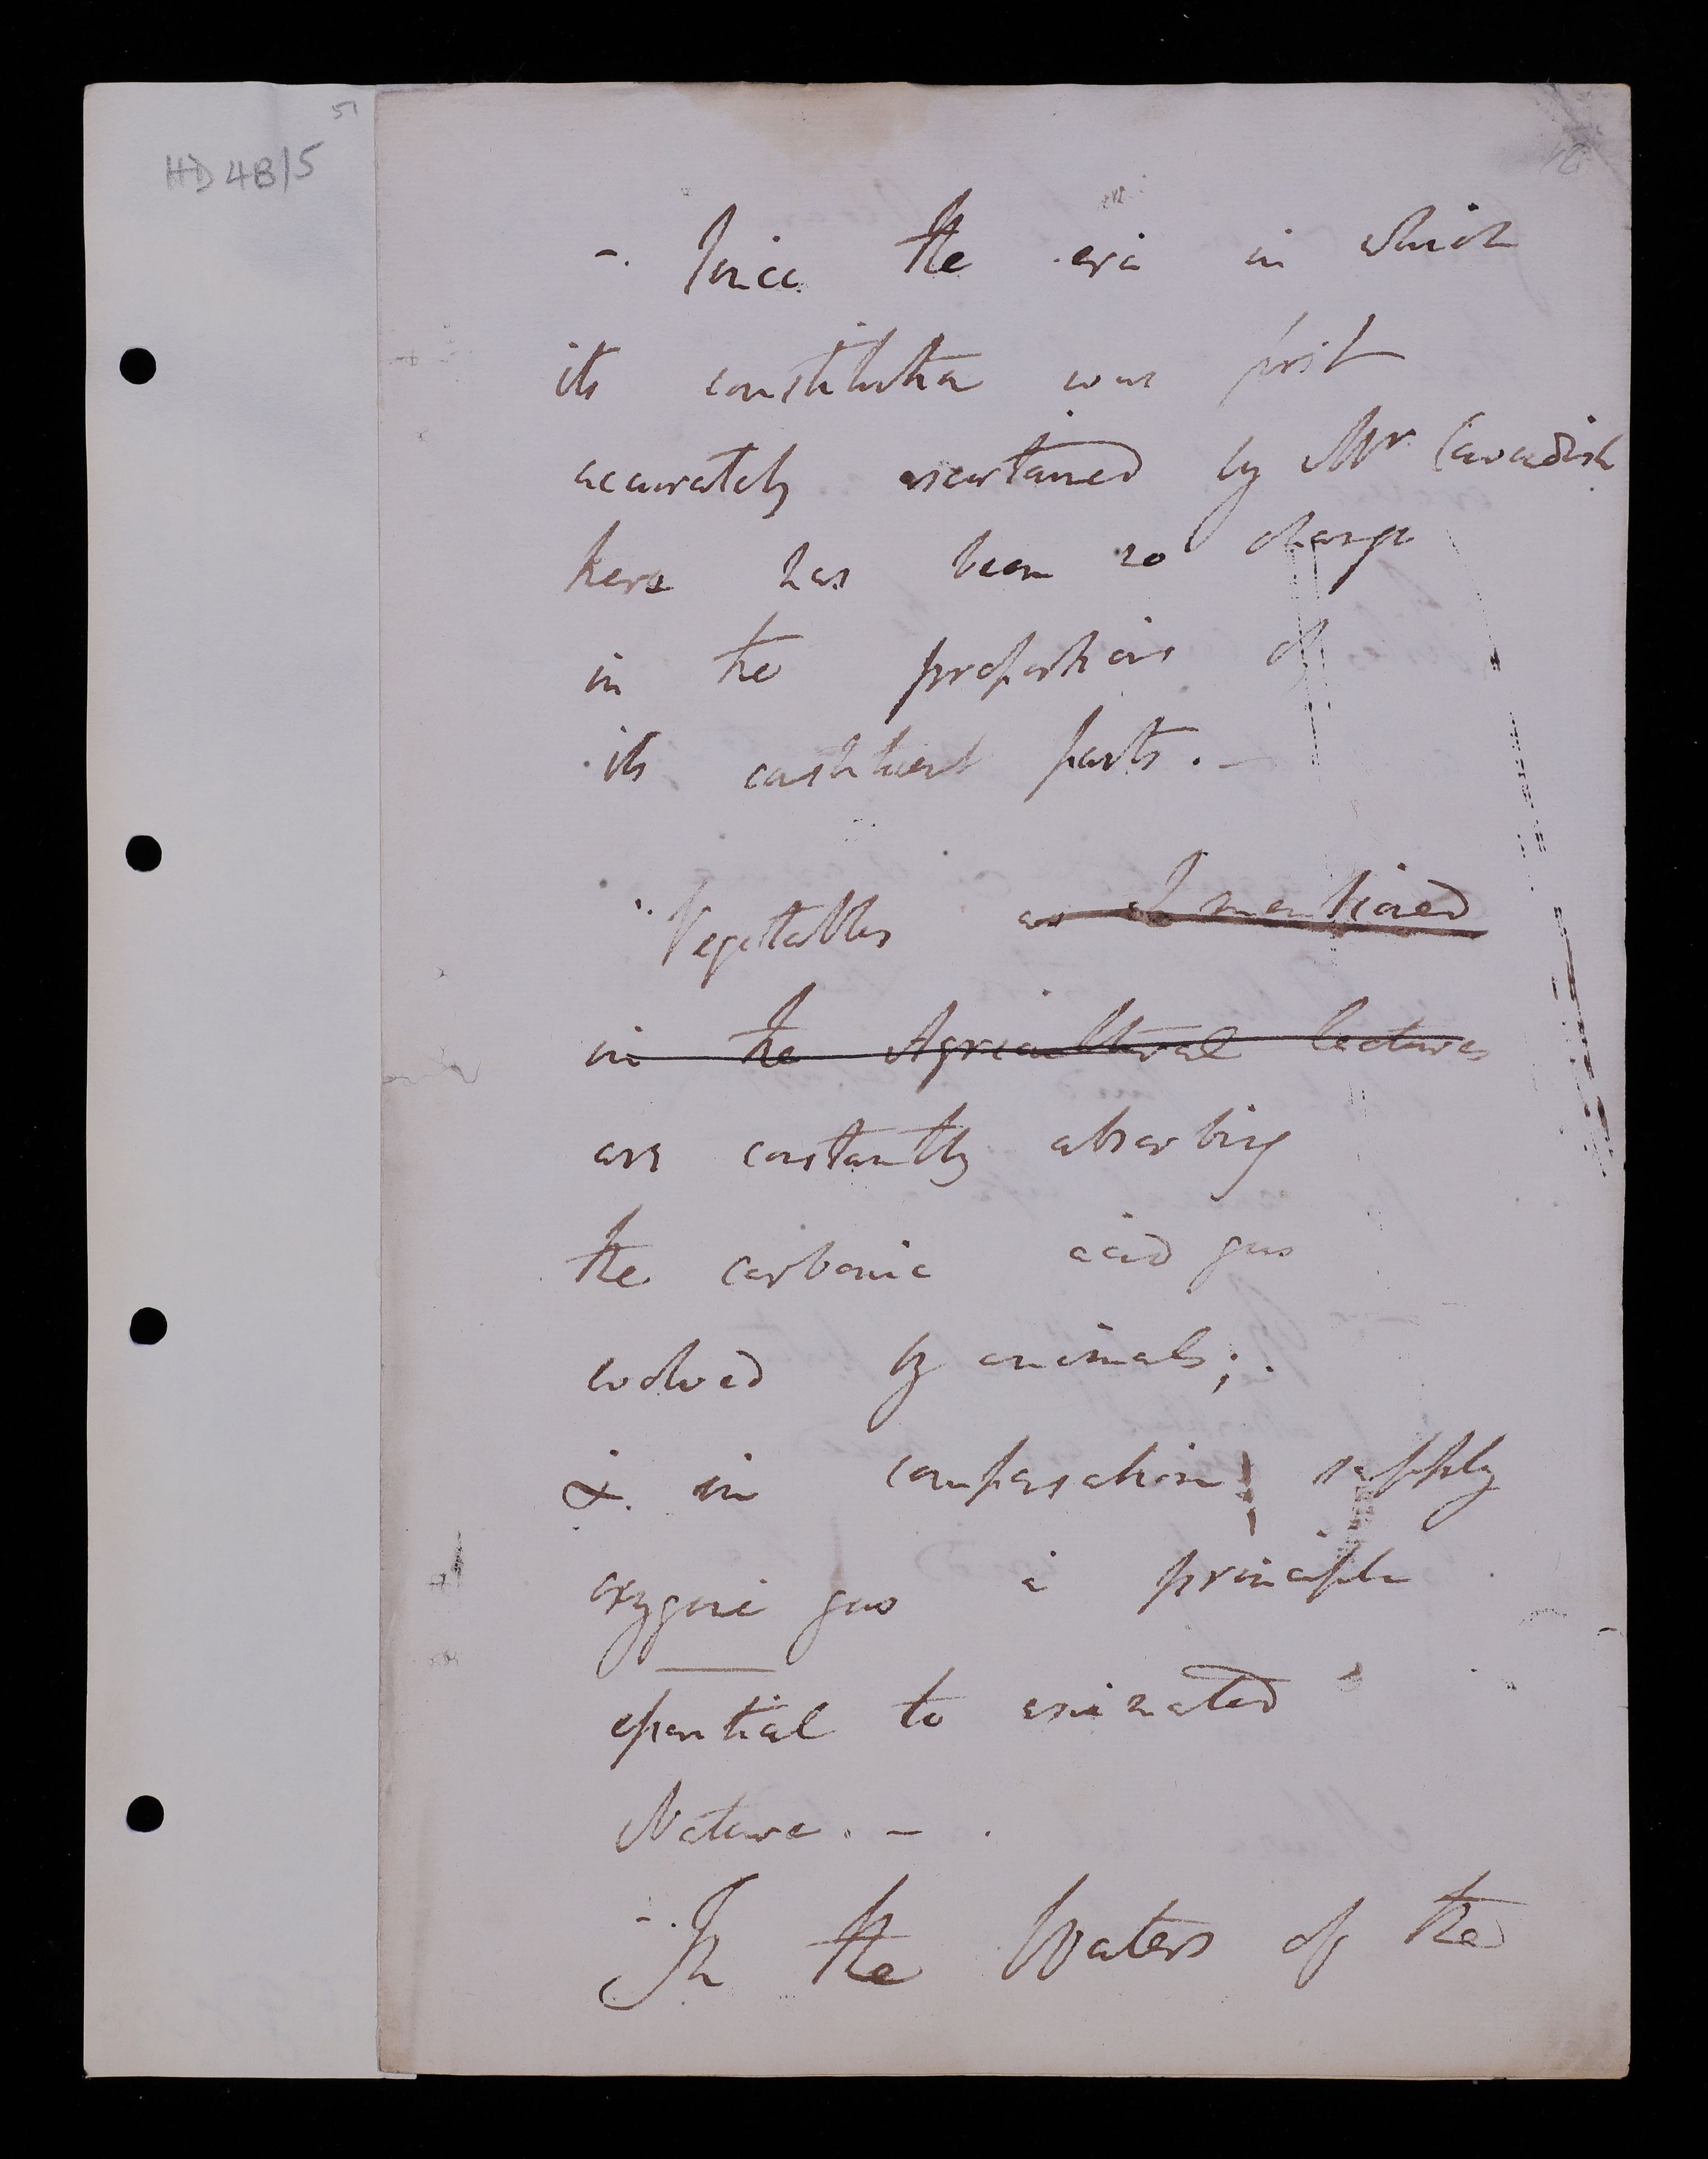 51
HD 4B/5
10
-. Since the era in which
its constitution was first
accurately ascertained by Mr Cavendish
there has been no change
in the proportions of
its constituent parts. -
Vegetables as I mentioned
in the Agricultural lectures
are constantly absorbing
the carbonic acid gas
evolved by animals;.
&. in compensation supply
oxygene gas a principle
essential to animated
Nature. - .
-. In the Waters of the